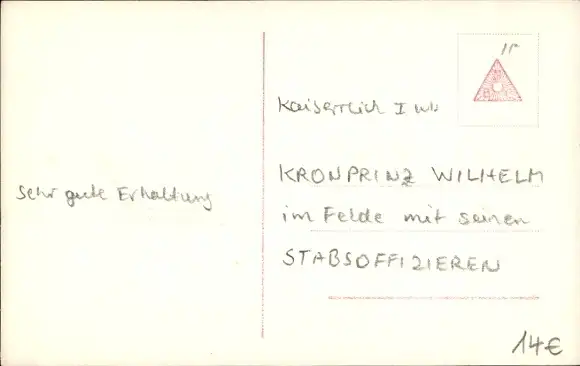 Kaiserlich I wk
KRONPRINZ WILHELM
im Felde mit seinen
STABSOFFIZIEREN
sehr gute Erhaltung
14€